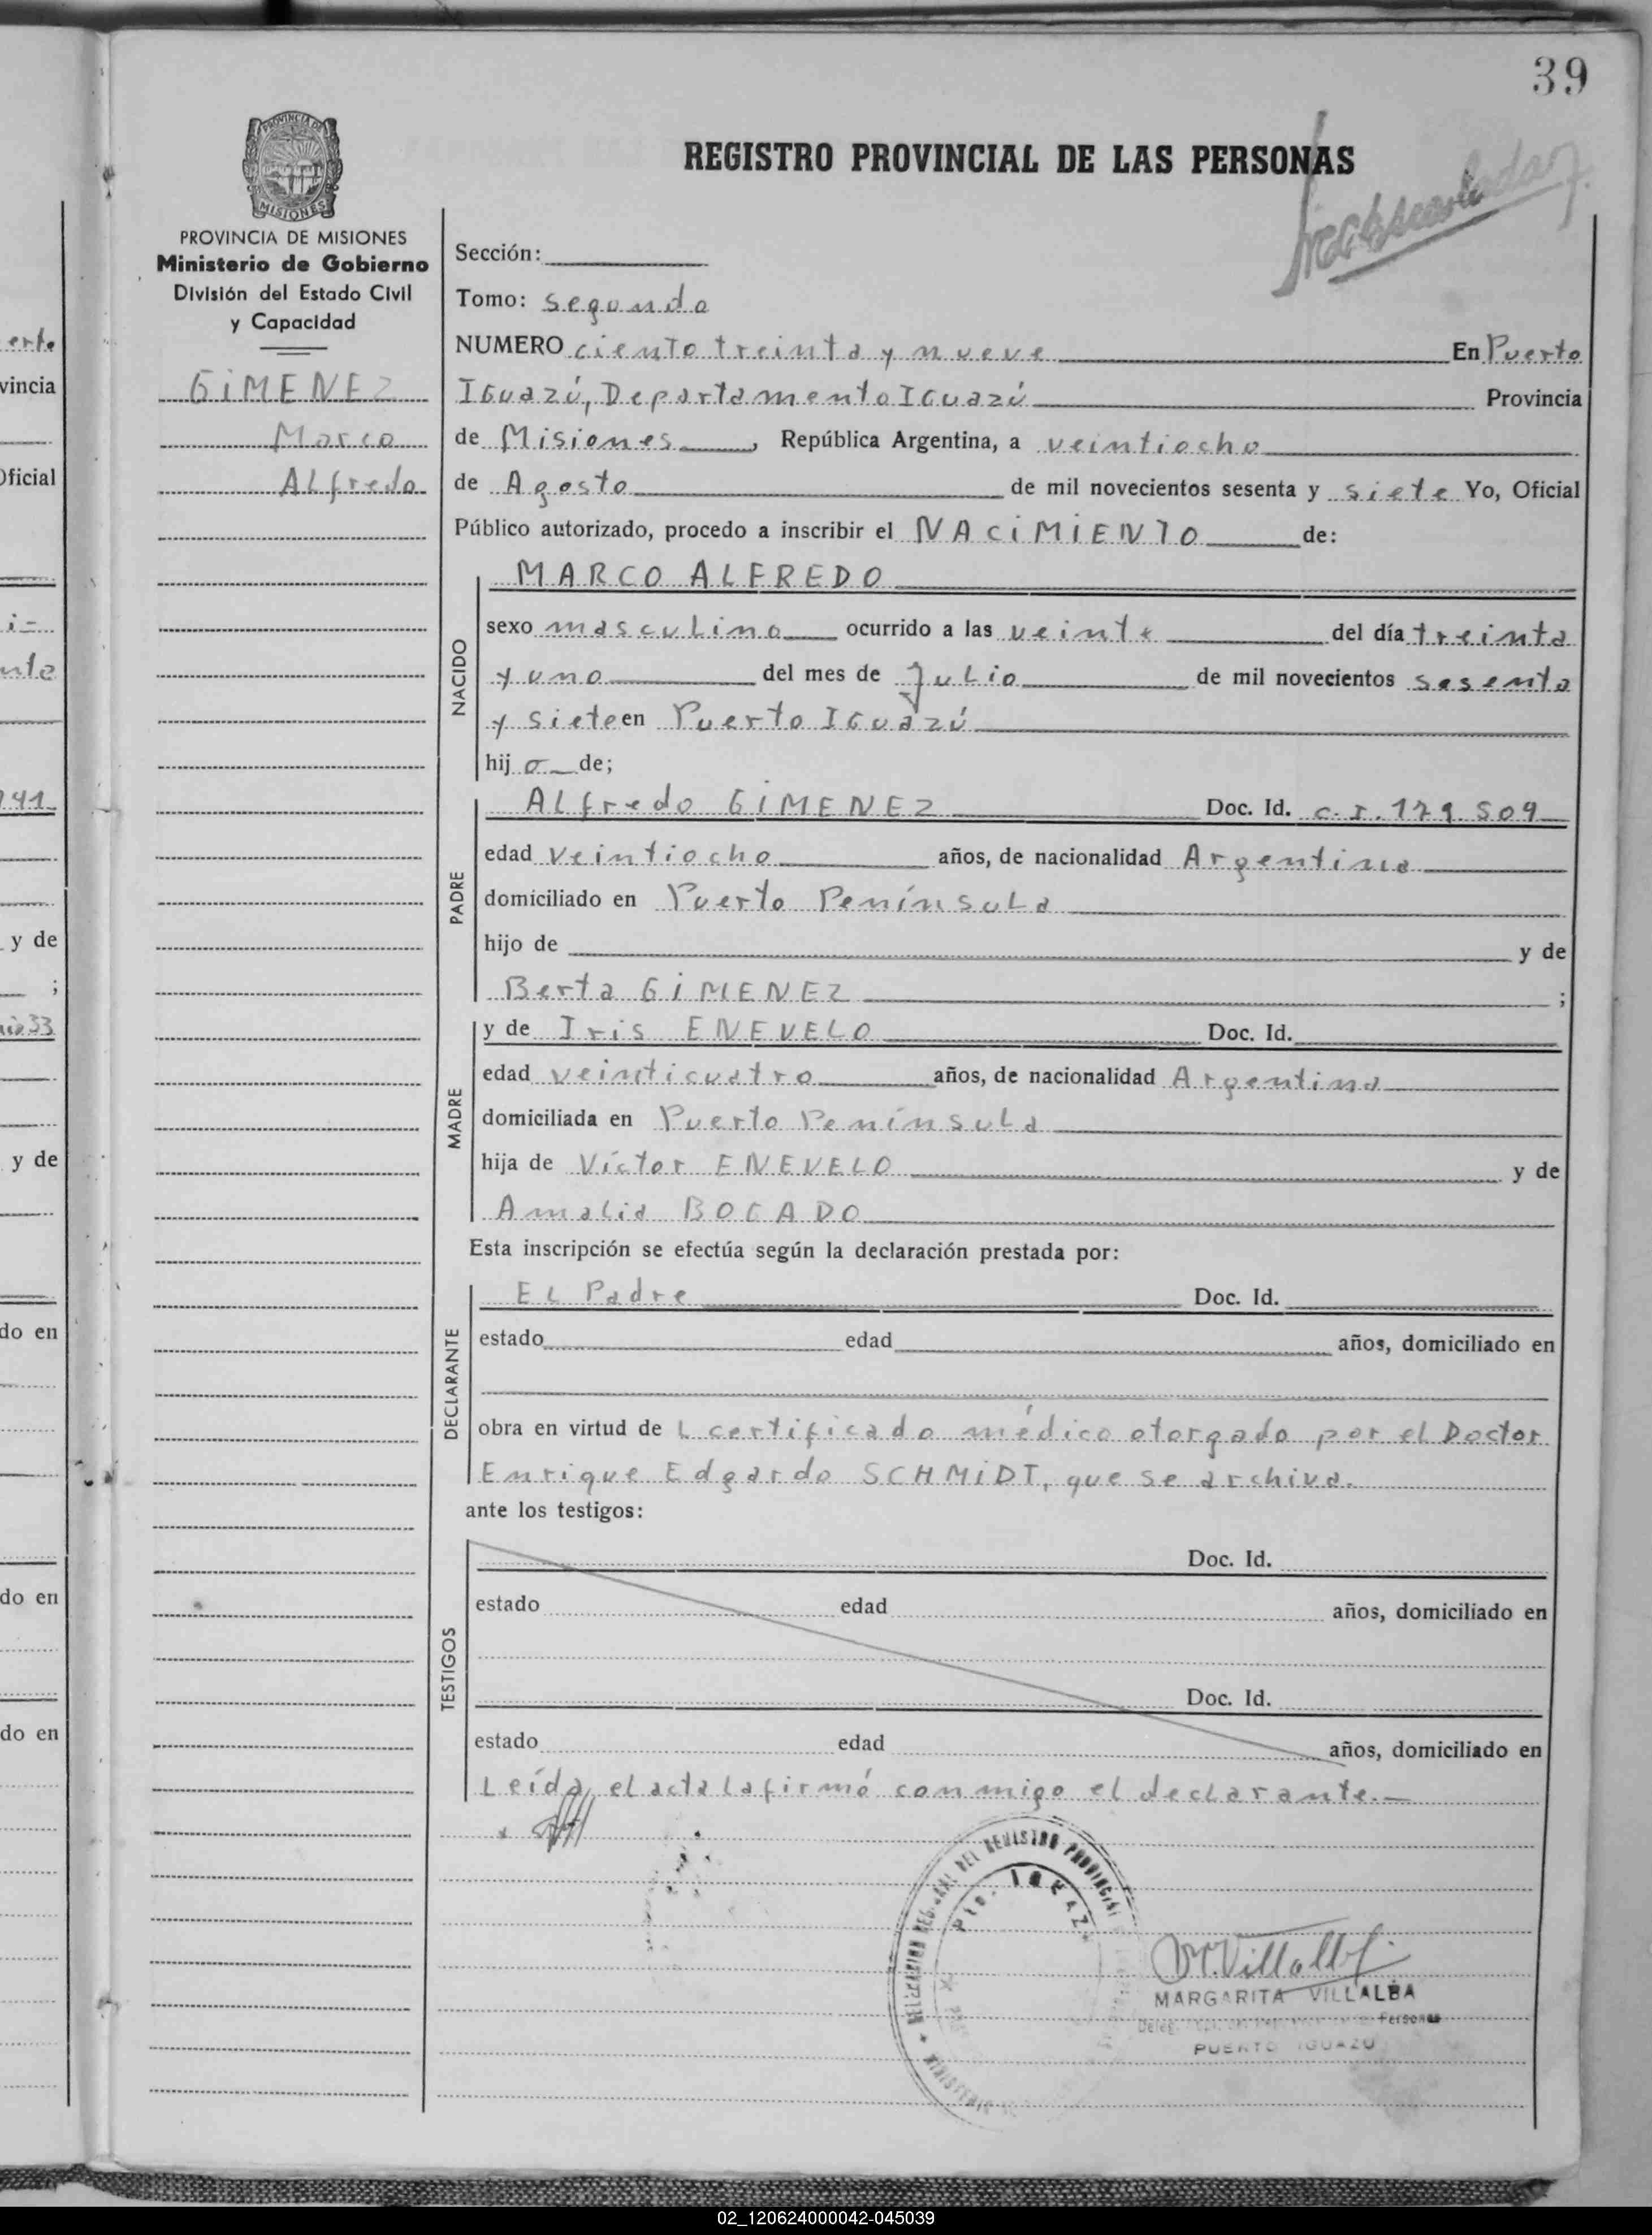 39
REGISTRO PROVINCIAL DE LAS PERSONAS
PROVINCIA DE MISIONES
Ministerio de Gobierno
División del Estado Civil
y Capacidad
GIMENEZ
Marco
ALfredo
Sección:
Tomo: segundo
NUMERO ciento treinta y nueve En Puerto
IGuazú, Departamento IGuazú Provincia
de Misiones, República Argentina, a veintiocho
de Agosto de mil novecientos sesenta y siete Yo, Oficial
Público autorizado, procedo a inscribir el NACiMiENTO de:
MARCO ALFREDO
NACIDO
sexo mascuLino ocurrido a las veinte del día treinta
y uno del mes de JuLio de mil novecientos sesenta
y siete en Puerto IGuazú
hijo de;
PADRE
ALfredo GiMENEZ Doc. Id. c.I. 179.509
edad veintiocho años, de nacionalidad Argentina
domiciliado en Puerto PenínsuLa
hijo de y de
Berta GiMENEZ ;
MADRE
y de Iris ENEVELO Doc. Id.
edad veinticuatro años, de nacionalidad Argentina
domiciliada en Puerto PenínsuLa
hija de Víctor ENEVELO y de
Amalia BOCADO
Esta inscripción se efectúa según la declaración prestada por:
DECLARANTE
EL Padre Doc. Id.
estado edad años, domiciliado en
obra en virtud de L certificado médico otorgado por el Doctor
Enrique Edgardo SCHMiDT, que se archiva.
ante los testigos:
TESTIGOS
Doc. Id.
estado edad años, domiciliado en
Doc. Id.
estado edad años, domiciliado en
Leída el acta la firmó conmigo el declarante.-
DEL REGISTRO PROVINCIAL
M. Villalba
MARGARITA VILLALBA
Personas
PUERTO IGUAZU
erto
vincia
Oficial
y de
;
y de
do en
do en
do en
02_120624000042-045039